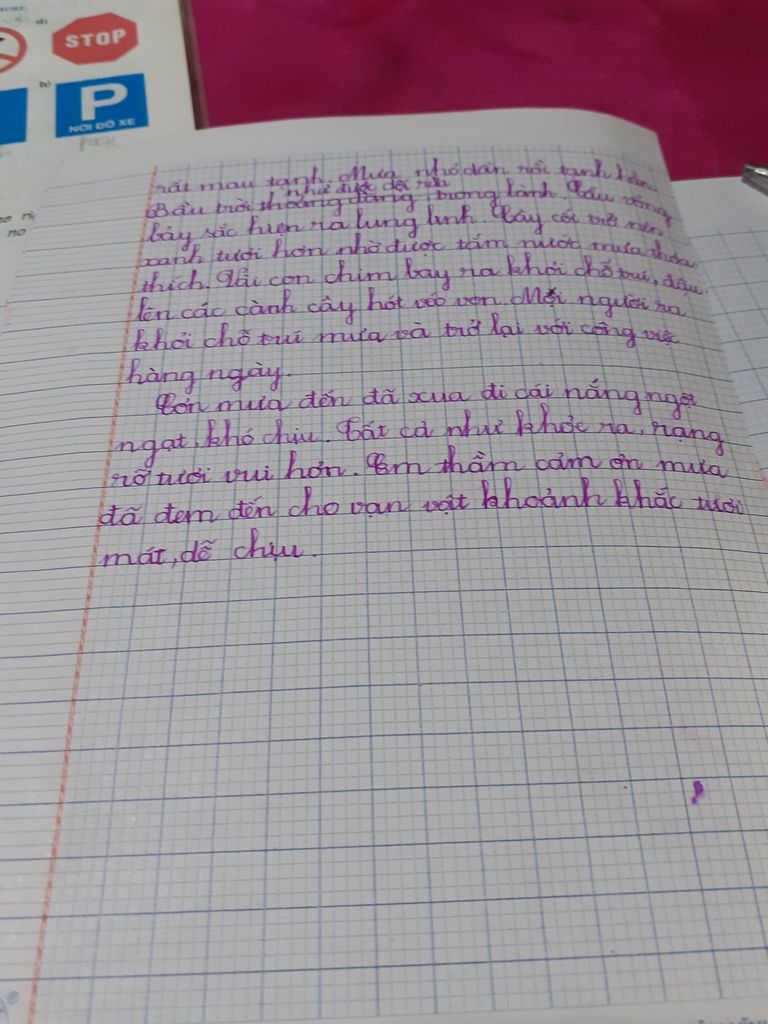 d)
STOP
h)
P
NƠI ĐỖ XE
Pook
no
rất mau tạnh. Mưa nhỏ dần rồi tạnh hẳn.
như được dội rửa
Bầu trời thoáng đãng, trong lành. Cầu vồng
bảy sắc hiện ra lung linh. Cây cối trở nên
xanh tươi hơn nhờ được tắm nước mưa thỏa
thích. Vài con chim bay ra khỏi chỗ trú, đậu
lên các cành cây hót véo von. Mọi người ra
khỏi chỗ trú mưa và trở lại với công việc
hàng ngày.
Cơn mưa đến đã xua đi cái nắng ngột
ngạt, khó chịu. Tất cả như khỏe ra, rạng
rỡ tươi vui hơn. Em thầm cảm ơn mưa
đã đem đến cho vạn vật khoảnh khắc tươi
mát, dễ chịu.